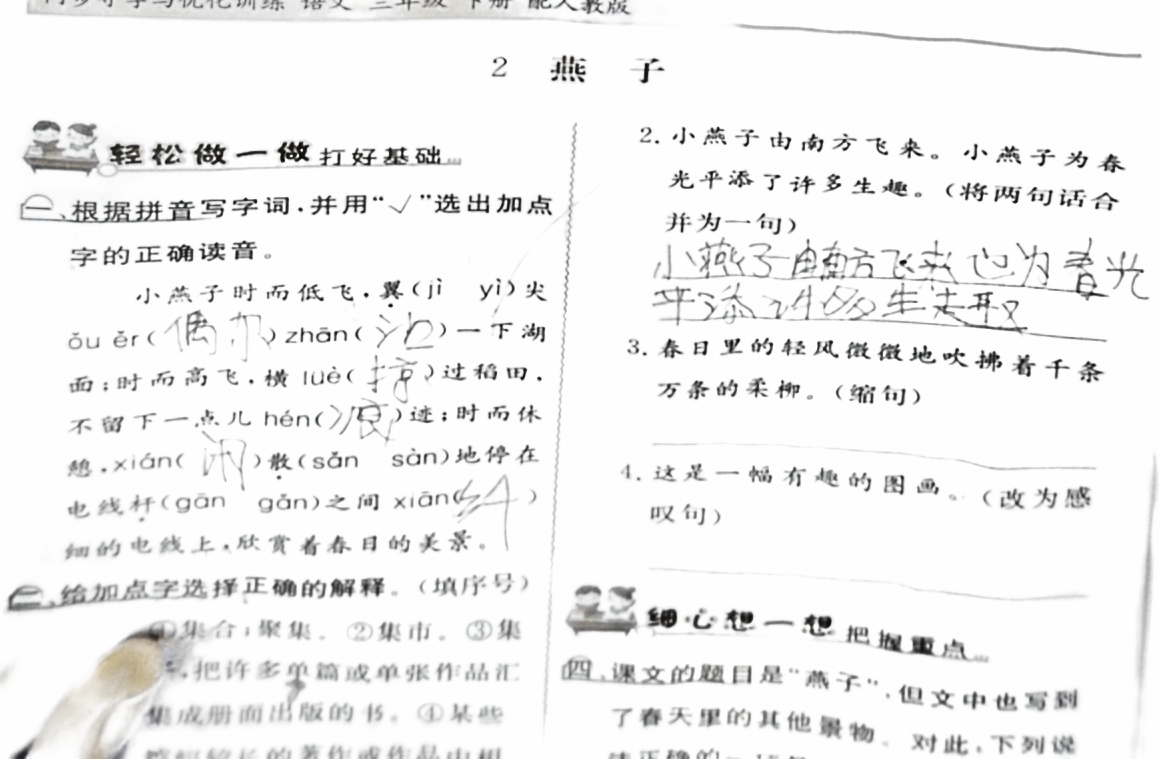 同步导学与优化训练 语文 三年级 下册 配人教版
2 燕 子
轻松做一做 打好基础
一、根据拼音写字词,并用“√”选出加点
字的正确读音。
小燕子时而低飞,翼(jì yì)尖
ǒu ěr(偶尔)zhān(沾)一下湖
面;时而高飞,横 lüè(掠)过稻田,
不留下一点儿 hén(痕)迹;时而休
憩,xián(闲)散(sǎn sàn)地停在
电线杆(gān gǎn)之间 xiān(纤)
细的电线上,欣赏着春日的美景。
二、给加点字选择正确的解释。(填序号)
①集合;聚集。②集市。③集
子,把许多单篇或单张作品汇
集成册而出版的书。④某些
篇幅较长的著作或作品中相
2. 小燕子由南方飞来。小燕子为春
光平添了许多生趣。(将两句话合
并为一句)
小燕子由南方飞来 也为春光
平添了许多生趣
3. 春日里的轻风微微地吹拂着千条
万条的柔柳。(缩句)
4. 这是一幅有趣的图画。(改为感
叹句)
细心想一想 把握重点
四、课文的题目是“燕子”,但文中也写到
了春天里的其他景物。对此,下列说